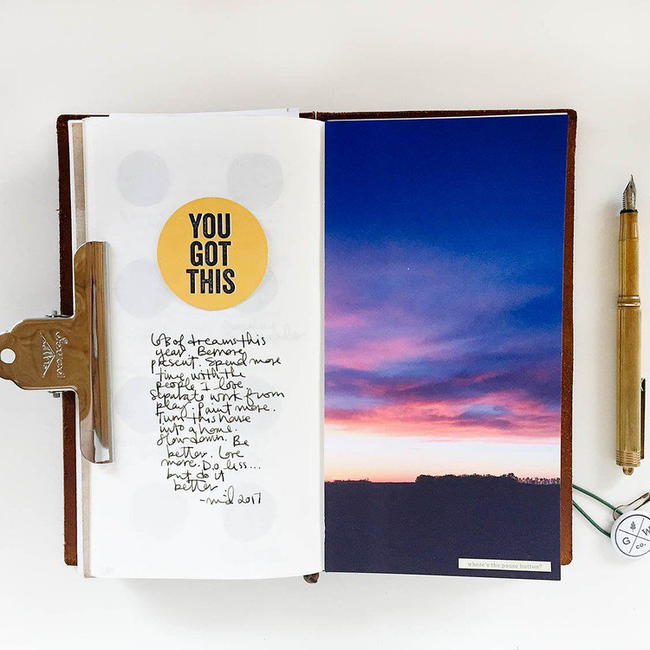 YOU
GOT
THIS
of dreams this
year. Be more
present. Spend more
time with the
people I love.
separate work from
play. Paint more.
Turn this house
into a home.
Slow down. Be
better. Love
more. Do less...
but do it
better
-mid 2017
where's the pause button?
G W
CO.